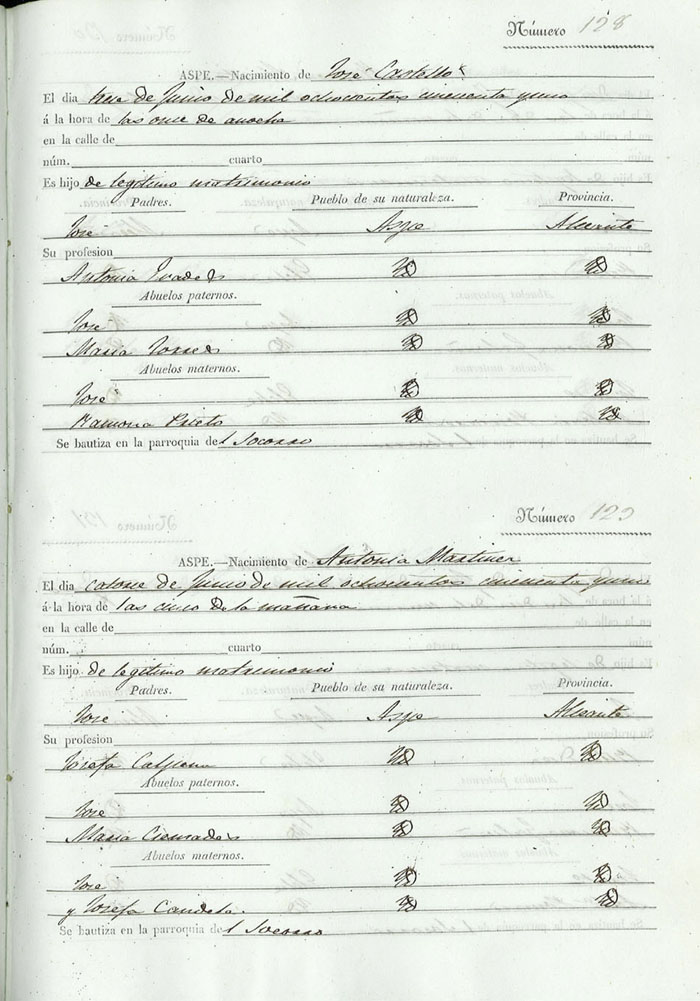 Número 128
ASPE.—Nacimiento de José Castelló
El dia trece de Junio de mil ochocientos cincuenta y uno
á la hora de las once de anoche
en la calle de
núm. cuarto
Es hijo de legitimo matrimonio
Padres. Pueblo de su naturaleza. Provincia.
José Aspe Alicante
Su profesion
Antonia
Abuelos paternos.
José
Maria Torres
Abuelos maternos.
José
Ramona Prieto
Se bautiza en la parroquia del Socorro
Número 129
ASPE.—Nacimiento de Antonia Martinez
El dia catorce de Junio de mil ochocientos cincuenta y uno
á la hora de las cinco de la mañana
en la calle de
núm. cuarto
Es hijo de legitimo matrimonio
Padres. Pueblo de su naturaleza. Provincia.
José Aspe Alicante
Su profesion
Josefa Calpena
Abuelos paternos.
José
Maria
Abuelos maternos.
José
y Josefa Candela.
Se bautiza en la parroquia del Socorro